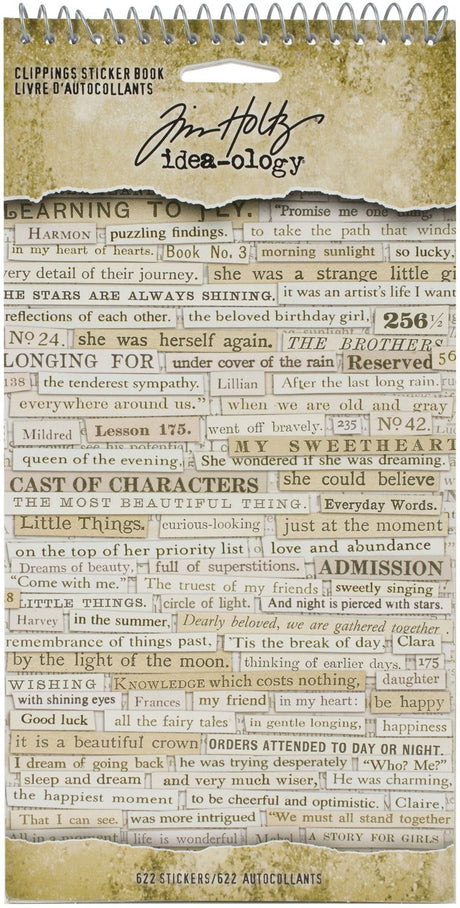 CLIPPINGS STICKER BOOK
LIVRE D'AUTOCOLLANTS
Tim Holtz
idea-ology
LEARNING TO FLY. "Promise me one thing,
HARMON puzzling findings. to take the path that winds
in my heart of hearts. Book No. 3 morning sunlight so lucky,
very detail of their journey. she was a strange little gi
HE STARS ARE ALWAYS SHINING. it was an artist's life I want
reflections of each other. the beloved birthday girl, 256½
No 24. she was herself again. THE BROTHERS
LONGING FOR under cover of the rain Reserved 56
138 the tenderest sympathy. Lillian After the last long rain.
everywhere around us." when we are old and gray
Mildred Lesson 175. went off bravely. 235 No 42.
MY SWEETHEART
queen of the evening, She wondered if she was dreaming.
CAST OF CHARACTERS she could believe
THE MOST BEAUTIFUL THING. Everyday Words.
Little Things. curious-looking just at the moment
on the top of her priority list love and abundance
Dreams of beauty, full of superstitions. ADMISSION
"Come with me." The truest of my friends sweetly singing
8 LITTLE THINGS. circle of light. And night is pierced with stars.
Harvey in the summer, Dearly beloved, we are gathered together
remembrance of things past. 'Tis the break of day, Clara
by the light of the moon. thinking of earlier days. 175
WISHING KNOWLEDGE which costs nothing, daughter
with shining eyes Frances my friend in my heart: be happy
Good luck all the fairy tales in gentle longing, happiness
it is a beautiful crown ORDERS ATTENDED TO DAY OR NIGHT.
I dream of going back he was trying desperately "Who? Me?"
sleep and dream and very much wiser, He was charming,
the happiest moment to be cheerful and optimistic. Claire,
That I can see. was more intrigued "We must all stand together
All in a moment life is wonderful Mabel A STORY FOR GIRLS
622 STICKERS/622 AUTOCOLLANTS